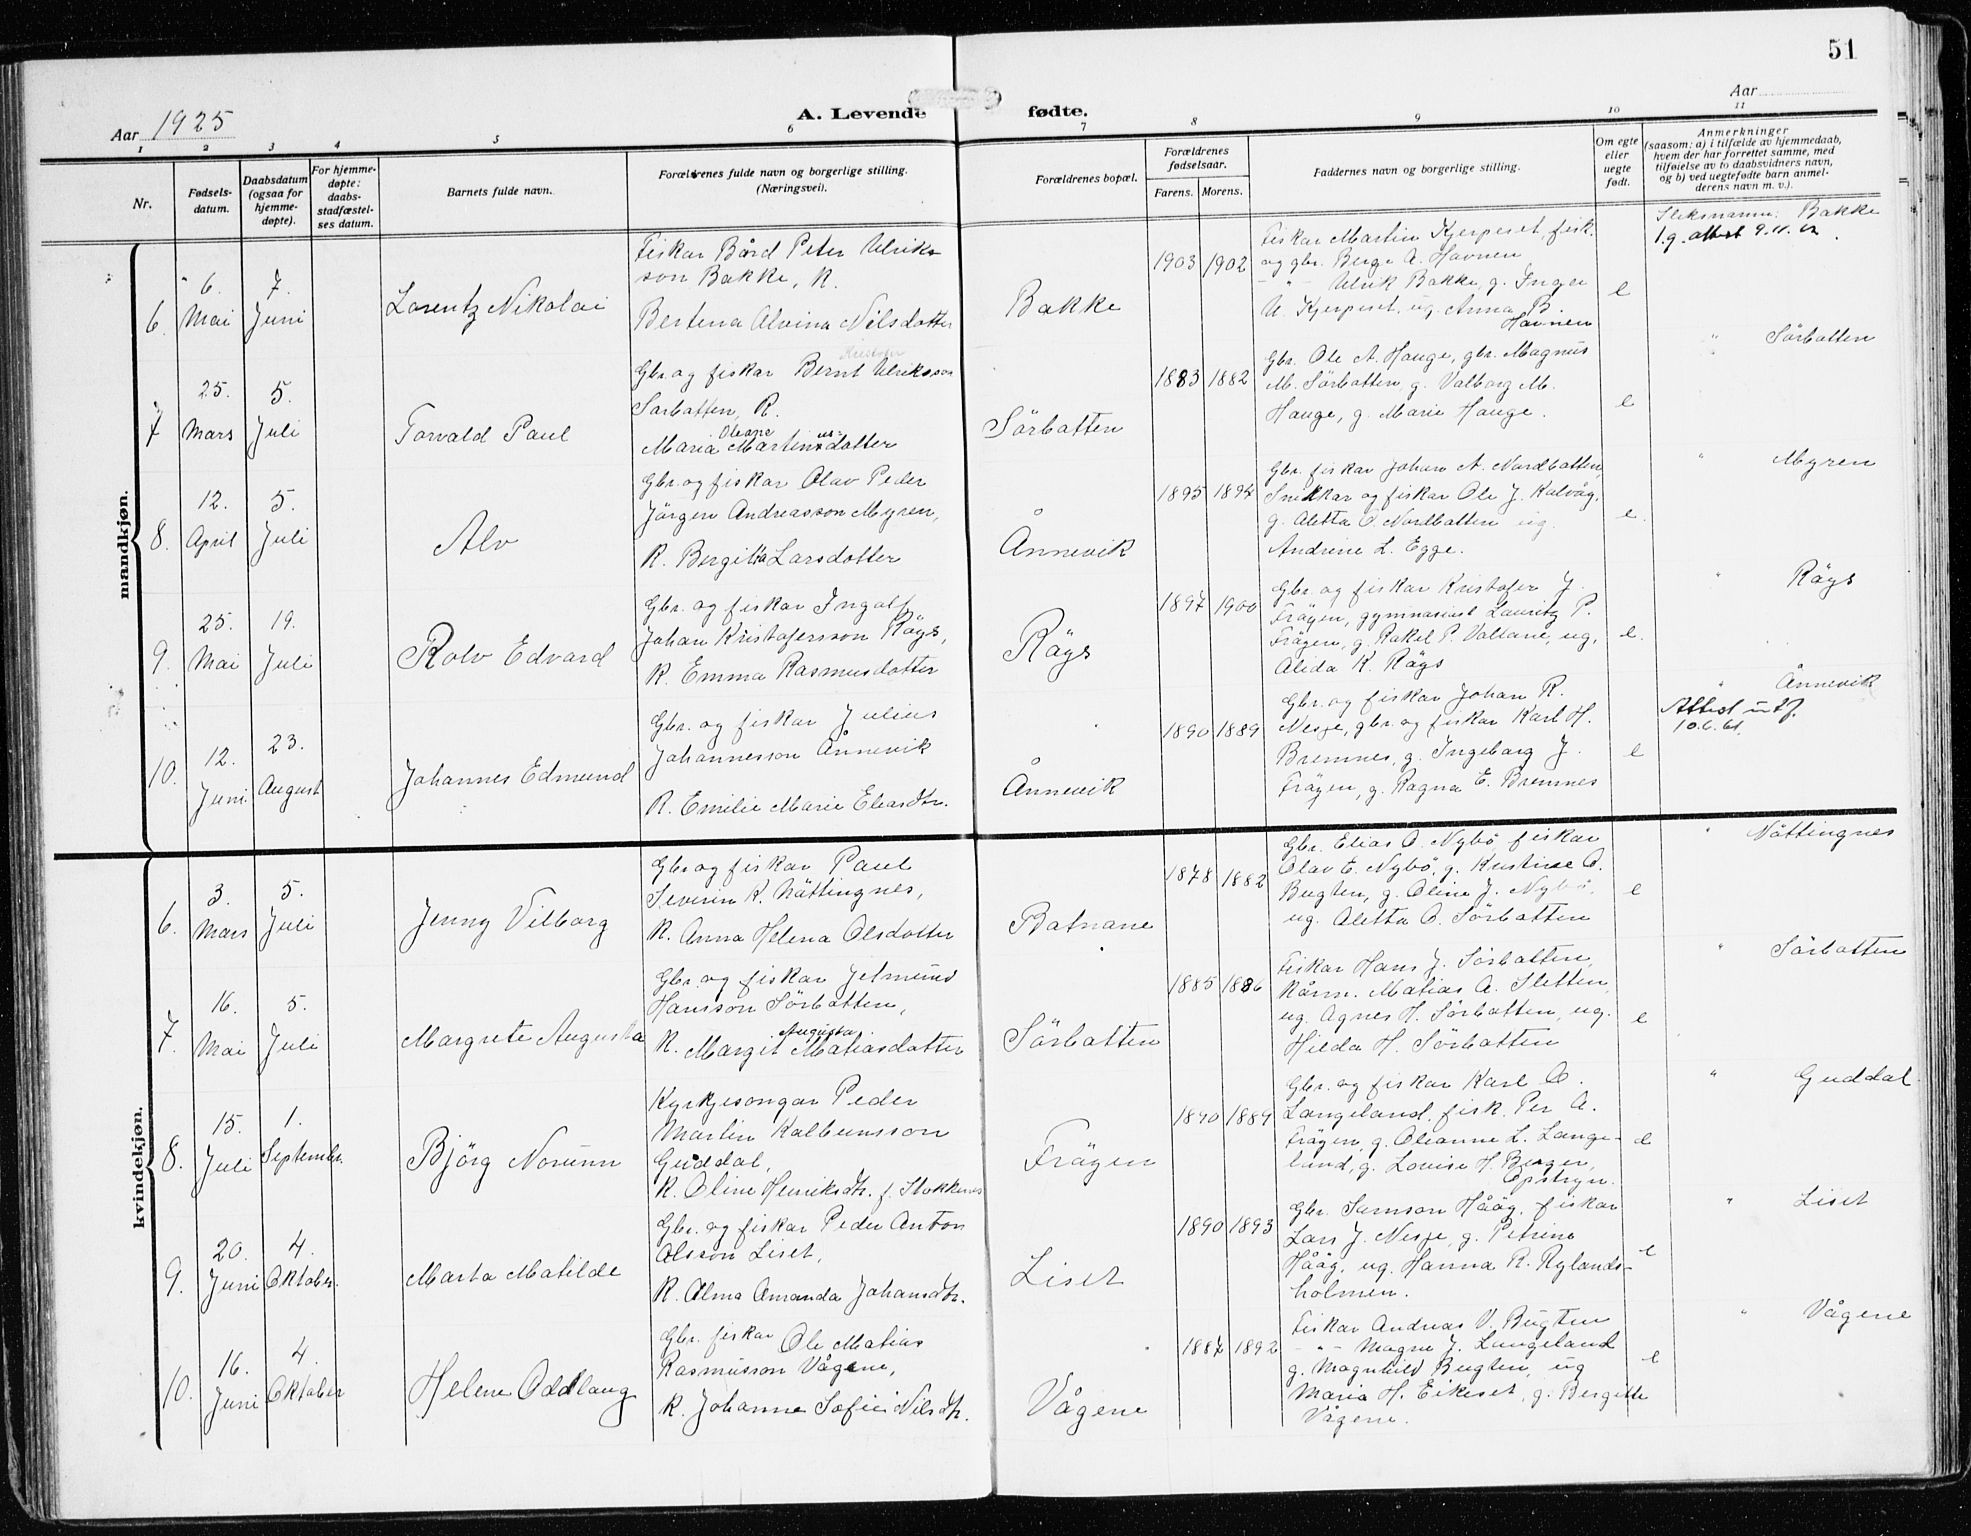 51
Aar 1925
A. Levende fødte.
Aar
1 2 3 4 5 6 7 8 9 10 11
Nr.
Fødsels-
datum.
Daabsdatum
(ogsaa for
hjemme-
døpte).
For hjemme-
døpte:
daabs-
stadfæstel-
ses datum.
Barnets fulde navn.
Forældrenes fulde navn og borgerlige stilling.
(Næringsvei).
Forældrenes bopæl.
Forældrenes
fødselsaar.
Farens. Morens.
Faddernes navn og borgerlige stilling.
Om egte
eller
uegte
født.
Anmerkninger
(saasom: a) i tilfælde av hjemmedaab,
hvem der har forrettet samme, med
tilføielse av to daabsvidners navn,
og b) ved uegtefødte barn anmel-
derens navn m. v.).
mandkjøn.
6.
6.
Mai
7.
Juni
Lorentz Nikolai
Fiskar Bård Peter Ulriks-
son Bakke, K.
Bertena Alvina Nilsdotter
Bakke
1903 1902
Fiskar Martin Kjerpeset, fisk.
og gbr. Berge A. Havnen
- " - Ulrik Bakke, g. Inger
U. Kjerpeset, ug. Anna B.
Havnen
e
Slektsnamn: Bakke
7
25.
Mars
5.
Juli
Torvald Paul
Kristofer
Gbr. og fiskar Bernt Ulriksson
Sørbotten, K.
Oleane
Maria Martinusdotter
Sörbotten
1883 1882
Gbr. Ole A. Hauge, gbr. Magnus
M. Sörbotten, g. Valborg M.
Hauge, g. Marie Hauge.
e
" Sörbotten
8.
12.
April
5.
Juli
Alv
Gbr. og fiskar Olav Peder
Jörgen Andreasson Myren,
K. Bergitta Larsdotter
Ånnevik
1895 1894
Gbr. fiskar Johan A. Nordbotten,
Snikkar og fiskar Ole J. Kalvåg,
g. Aletta O. Nordbotten ug.
Andrine L. Egge.
e.
" Myren
9.
25.
Mai
19.
Juli
Rolv Edvard
Gbr. og fiskar Ingolf
Johan Kristofersson Rögs,
K. Emma Rasmusdotter
Rögs
1897 1900
Gbr. og fiskar Kristofer J.
Fröyen, gymnasiast Lauritz P.
Fröyen, g. Rakel P. Vallane, ug.
Alida K. Rögs
e.
" Rögs
10.
12.
Juni
23.
August
Johannes Edmund
Gbr. og fiskar Julius
Johannesson Ånnevik
K. Emilie Marie Eliasdtr.
Ånnevik
1890 1889
Gbr. og fiskar Johan R.
Nesje, gbr. og fiskar Karl H.
Bremnes, g. Ingeborg J.
Fröyen, g. Ragna E. Bremnes
e
" Ånnevik
Attest utf.
10.6.61.
kvindekjøn.
6.
3.
Mars
5.
Juli
Jenny Vilborg
Gbr og fiskar Paul
Severin K. Nöttingnes,
K. Anna Helena Olsdotter
Botnane
1878 1882
Gbr. Elias O. Nybö, fiskar
Olav E. Nybö, g. Kristine O.
Bugten, g. Oline J. Nybö,
ug. Aletta O. Sörbotten
e
" Nöttingnes
7.
16.
Mai
5.
Juli
Margrete Augusta
Gbr. og fiskar Jetmund
Hansson Sörbotten,
Augusta
K. Margit Matiasdotter
Sörbotten
1885 1886
Fiskar Hans J. Sörbotten,
kårm. Matias A. Sletten,
ug. Agnes H. Sörbotten, ug.
Hilda H. Sörbotten
e
" Sörbotten
8.
15.
Juli
1.
September.
Björg Norunn
Kyrkjesongar Peder
Martin Kolbeinsson
Guddal,
K. Oline Henriksdtr. f. Stokkenes
Fröyen
1890 1889
Gbr. og fiskar Karl O.
Langeland, fisk. Per A.
Fröyen, g. Olianne L. Lange-
land, g. Louise H. Berger,
Opstryn.
e
" Guddal.
9.
20.
Juni
4.
Oktober.
Marta Matilde
Gbr. og fiskar Peder Anton
Olsson Liset,
K. Alma Amanda Johansdtr.
Liset
1890 1893
Gbr. Samson Hååg, fiskar
Lars J. Nesje, g. Petrine
Hååg, ug. Hanna R. Rylands-
holmen.
e
" Liset
10.
16.
Juni
4.
Oktober
Helene Oddlaug
Gbr. fiskar Ole Matias
Rasmusson Vågene,
K. Johanne Sofie Nilsdtr.
Vågene
1887 1892
Fiskar Andreas V. Bugten
- " - Magne J. Langeland
g. Magnhild Bugten, ug
Maria H. Eikeset, g. Bergitte
Vågene.
e
" Vågene